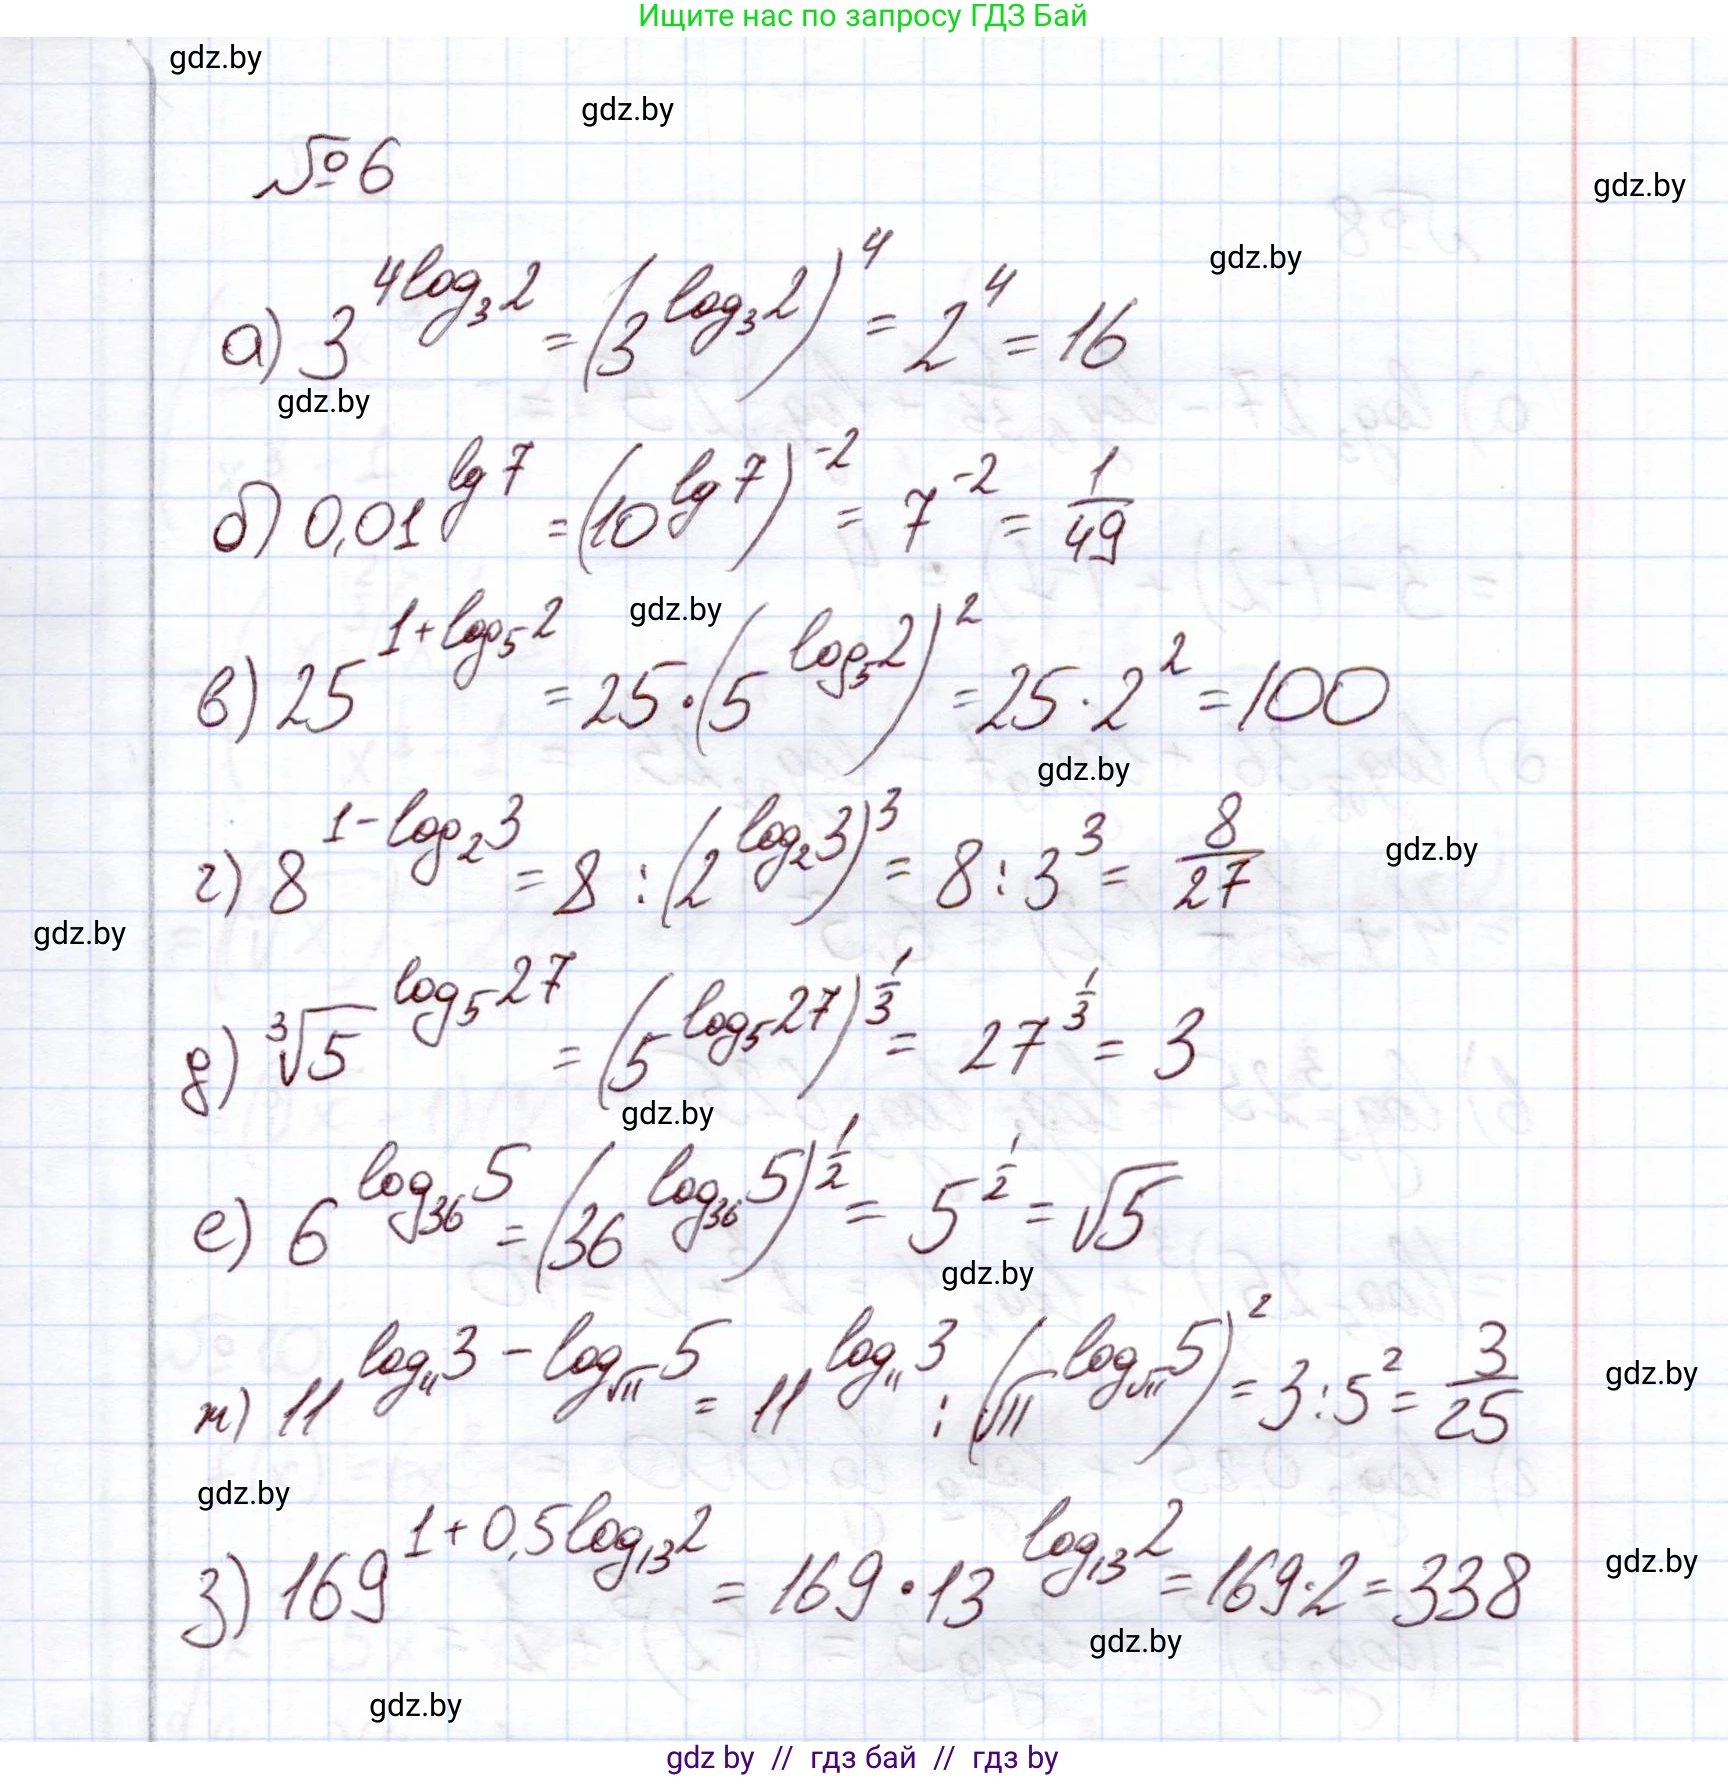 Ищите нас по запросу ГДЗ Бай
gdz.by
gdz.by
№6
gdz.by
gdz.by
а) 3^(4log₃2) = (3^(log₃2))^4 = 2^4 = 16
gdz.by
б) 0,01^(lg7) = (10^(lg7))^(-2) = 7^(-2) = 1/49
gdz.by
в) 25^(1+log₅2) = 25·(5^(log₅2))^2 = 25·2^2 = 100
gdz.by
г) 8^(1-log₂3) = 8 : (2^(log₂3))^3 = 8 : 3^3 = 8/27
gdz.by
gdz.by
д) ∛5^(log₅27) = (5^(log₅27))^(1/3) = 27^(1/3) = 3
gdz.by
е) 6^(log₃₆5) = (36^(log₃₆5))^(1/2) = 5^(1/2) = √5
gdz.by
ж) 11^(log₁₁3 - log_√11 5) = 11^(log₁₁3) : (√11^(log_√11 5))^2 = 3 : 5^2 = 3/25
gdz.by
gdz.by
з) 169^(1+0,5log₁₃2) = 169·13^(log₁₃2) = 169·2 = 338
gdz.by
gdz.by
gdz.by
gdz by // гдз бай // гдз by